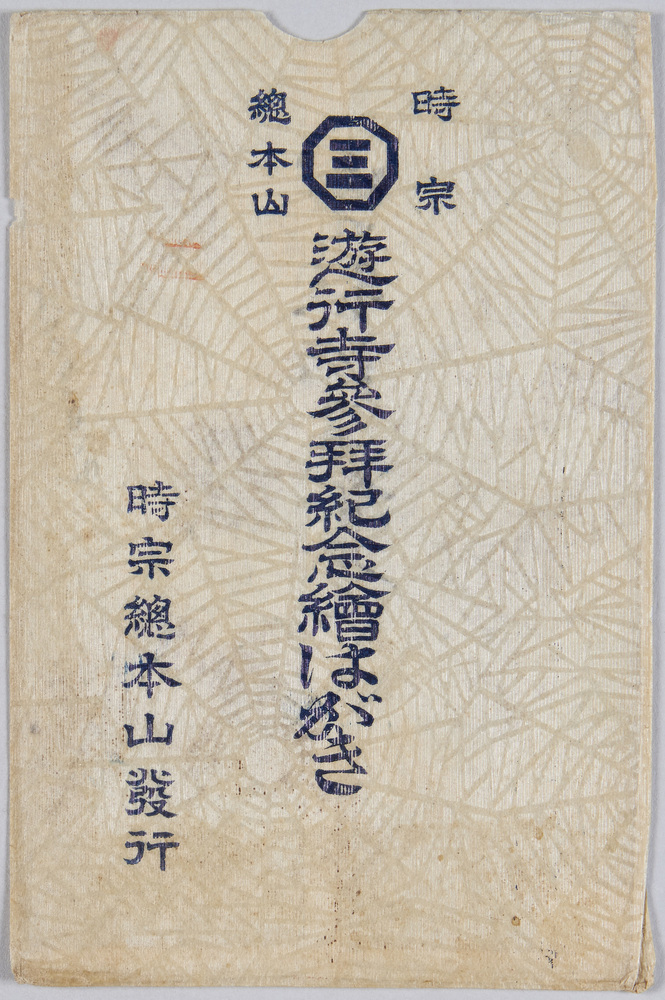 時宗
總本山
三
遊行寺參拜紀念繪はがき
時宗總本山發行